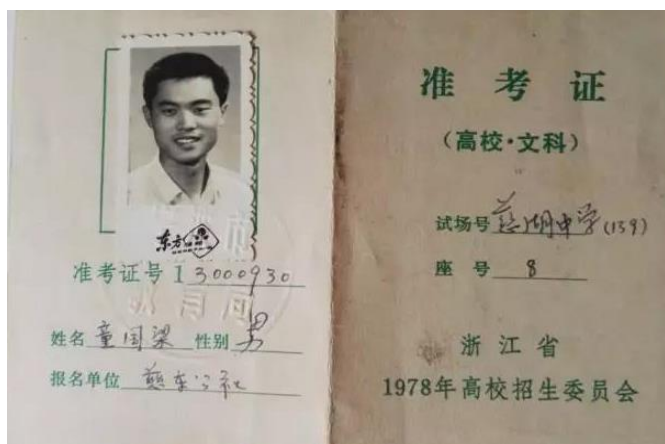 东方
准考证号13000930
姓名 童国梁 性别 男
报名单位 慈东公社
准考证
(高校·文科)
试场号 慈湖中学(139)
座号 8
浙江省
1978年高校招生委员会